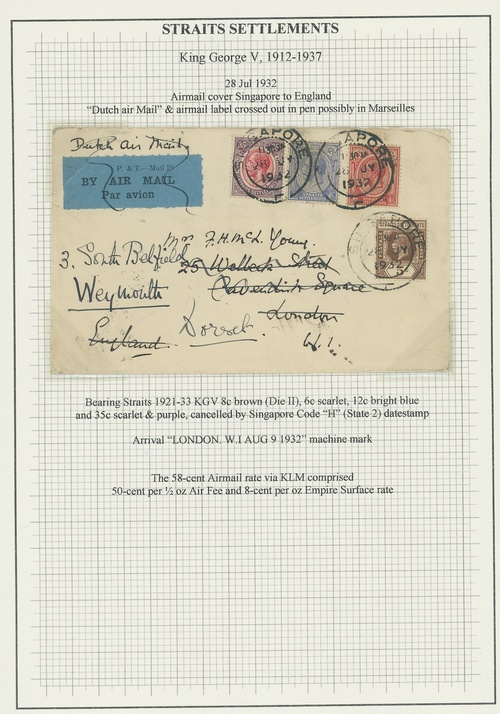 STRAITS SETTLEMENTS
King George V, 1912-1937
28 Jul 1932
Airmail cover Singapore to England
"Dutch air Mail" & airmail label crossed out in pen possibly in Marseilles
Dutch air Mail
P. & T.—Mail 25
BY AIR MAIL
Par avion
SINGAPORE
28 JY
1932
SETTLEMENTS
SINGAPORE
28 JY
1932
SINGAPORE
JY
1932
Mrs F.H. McL. Young.
3. South Belfield
25 Welbeck Street
Weymouth
Cavendish Square
London
England
Dorset
W.1.
Bearing Straits 1921-33 KGV 8c brown (Die II), 6c scarlet, 12c bright blue
and 35c scarlet & purple, cancelled by Singapore Code "H" (State 2) datestamp
Arrival "LONDON. W.I AUG 9 1932" machine mark
The 58-cent Airmail rate via KLM comprised
50-cent per ½ oz Air Fee and 8-cent per oz Empire Surface rate